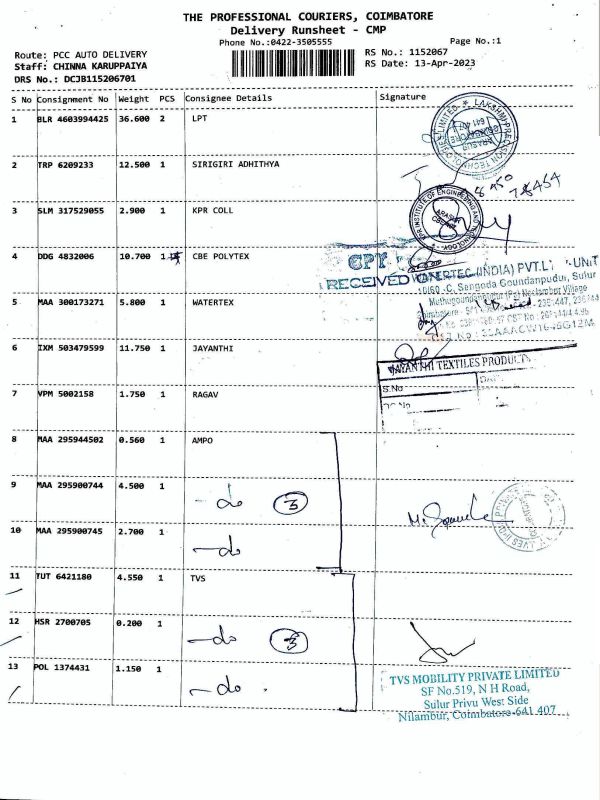 THE PROFESSIONAL COURIERS, COIMBATORE
Delivery Runsheet - CMP
Phone No.:0422-3505555
Page No.:1
Route: PCC AUTO DELIVERY
RS No.: 1152067
Staff: CHINNA KARUPPAIYA
RS Date: 13-Apr-2023
DRS No.: DCJB115206701
S No Consignment No Weight PCS Consignee Details Signature
1 BLR 4603994425 36.600 2 LPT
LAKSHMI PRECISION TECHNOLOGIES LIMITED
ARASUR
COIMBATORE
641 407
2 TRP 6209233 12.500 1 SIRIGIRI ADHITHYA
78454
3 SLM 317529055 2.900 1 KPR COLL
KPR INSTITUTE OF ENGINEERING AND TECHNOLOGY
ARASUR
4 DDG 4832006 10.700 1 CBE POLYTEX
CPT
RECEIVED
WATERTEC (INDIA) PVT.LT UNIT
Sengoda Goundanpudur, Sulur
5 MAA 300173271 5.800 1 WATERTEX
6 IXM 503479599 11.750 1 JAYANTHI
JAYANTHI TEXTILES PRODUCTS
S.No
7 VPM 5002158 1.750 1 RAGAV
8 MAA 295944502 0.560 1 AMPO
9 MAA 295900744 4.500 1
- do 3
10 MAA 295900745 2.700 1
- do
11 TUT 6421180 4.550 1 TVS
12 HSR 2700705 0.200 1
- do 3
13 POL 1374431 1.150 1
- do
TVS MOBILITY PRIVATE LIMITED
SF No.519, N H Road,
Sulur Privu West Side
Nilambur, Coimbatore-641 407